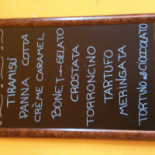 TIRAMISÙ
PANNA COTTA
CRÈME CARAMEL
BONET GELATO
CROSTATA
TORRONCINO
TARTUFO
MERINGATA
TORTINO CIOCCOLATO